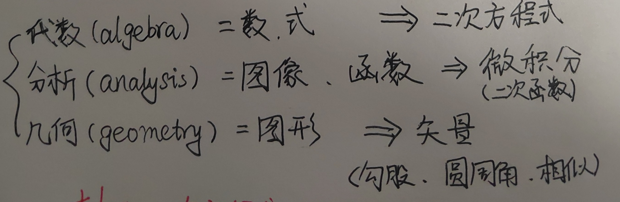 代数(algebra) = 数、式 ⇒ 二次方程式
分析(analysis) = 图像、函数 ⇒ 微积分
(二次函数)
几何(geometry) = 图形 ⇒ 矢量
(勾股、圆周角、相似)